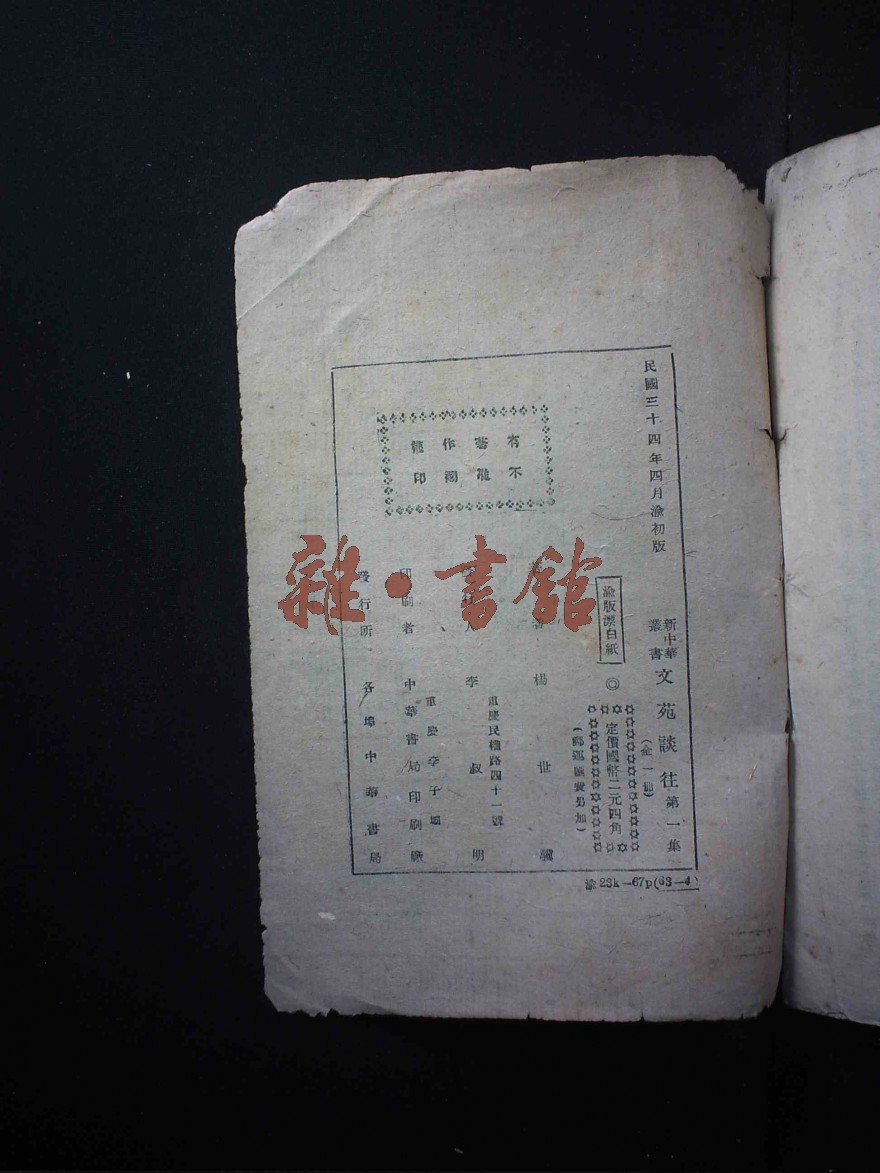 民國三十四年四月渝初版
新中華叢書
文苑談往第一集
(全一冊)
渝版漂白紙
◎定價國幣二元四角
(郵運匯費另加)
有著作權
不准翻印
著 楊世驥
人 李叔明
重慶民權路四十一號
印刷者 中華書局印刷廠
重慶李子壩
發行所 各埠中華書局
渝23k—67p(33—4)
雜·書館